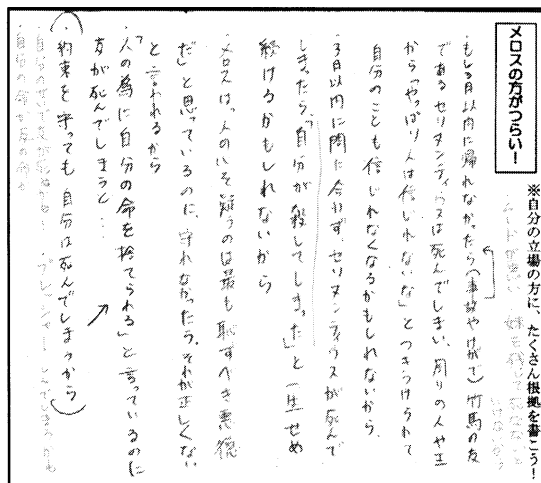 メロスの方がつらい！
※自分の立場の方に、たくさん根拠を書こう！
・もし3日以内に帰れなかったら(事故やけがで)竹馬の友
であるセリヌンティウスは死んでしまい、周りの人や王
から「やっぱり人は信じれないな」とつきつけられて
自分のことも信じれなくなるかもしれないから。
・3日以内に間に合わず、セリヌンティウスが死んで
しまったら、「自分が殺してしまった」と一生せめ
続けるかもしれないから
・メロスは、「人の心を疑うのは最も恥ずべき悪徳
だ」と思っているのに、守れなかったら、それが正しくない
と言われるから
・「人の為に自分の命を捨てられる」と言っているのに
友が死んでしまうと…
・約束を守っても自分は死んでしまうから